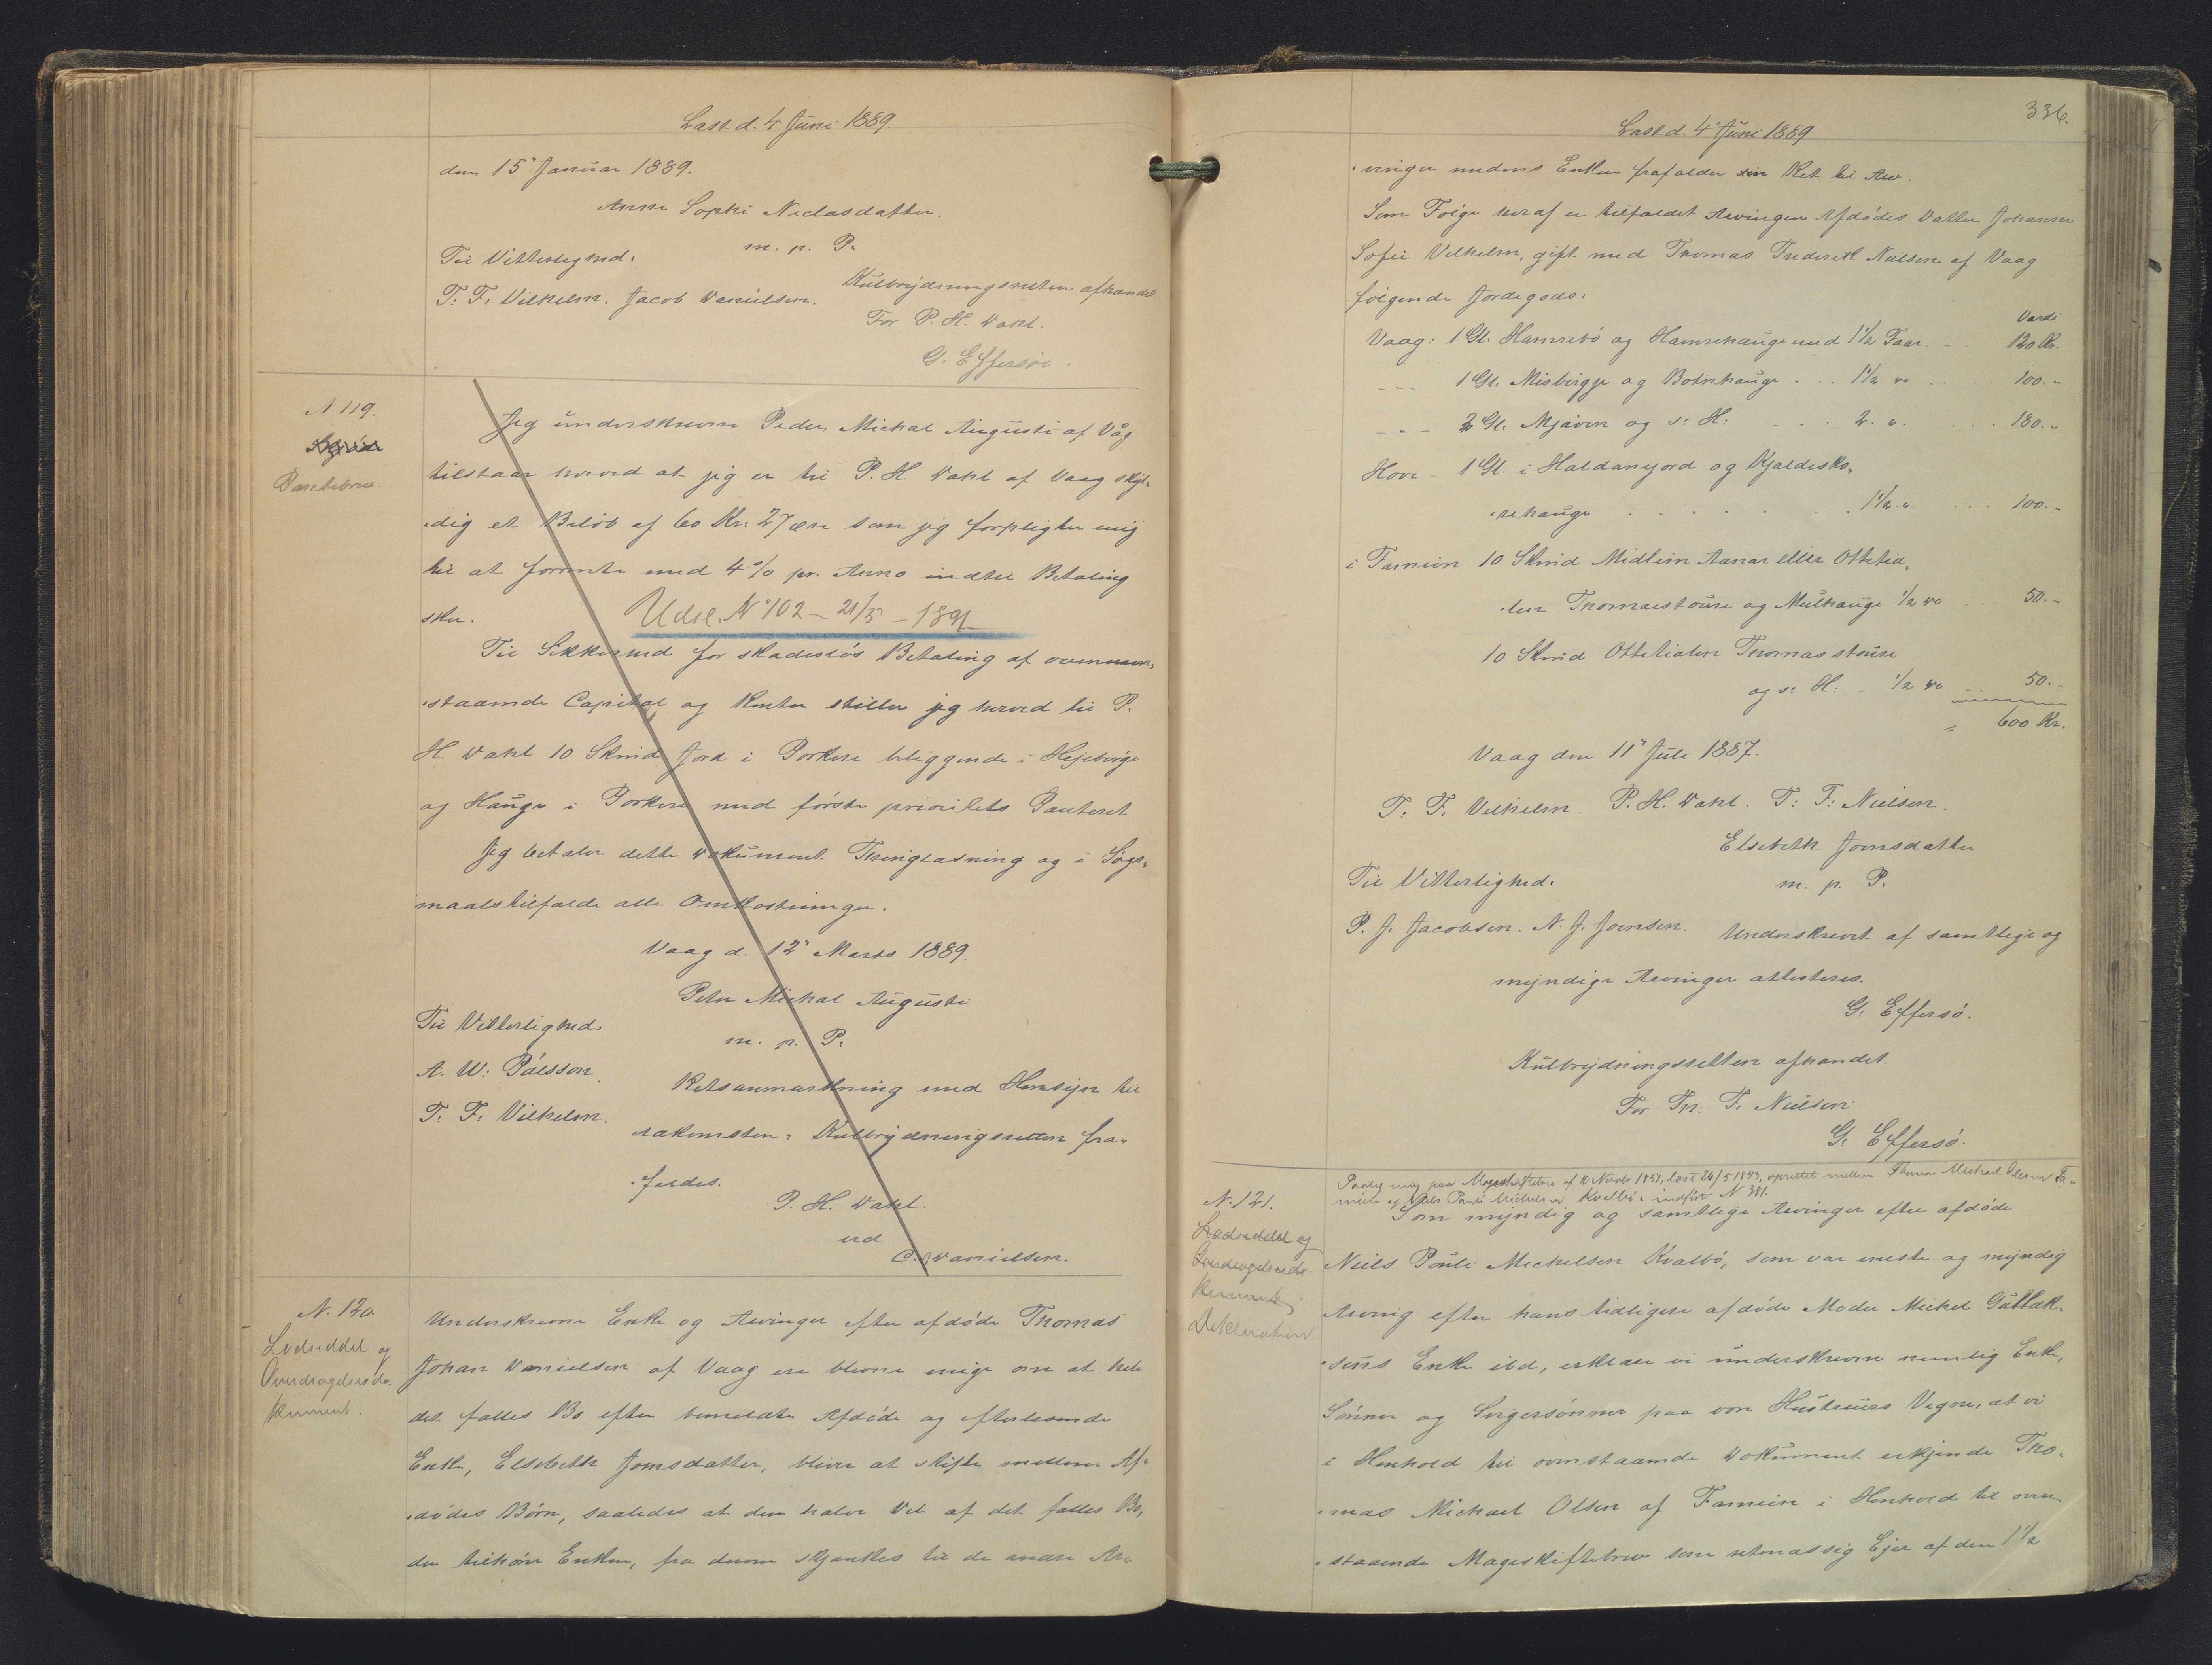 Læst d. 4 Juni 1889.
den 15' Januar 1889.
Anna Sophi Niclasdatter.
m. p. P.
Til Vitterlighed:
T. F. Vilhelm. Jacob Danielsen.
Kulbrydningsretten afhændet
For P. H. Dahl.
G. Effersøe.
N 119.
Pantebrev.
Jeg underskrevne Peder Michal Augusti af Våg
tilstaar herved at jeg er til P. H. Dahl af Vaag skyl-
dig et Beløb af 60 Kr. 27 øre som jeg forpligter mig
til at forrente med 4 % pr. Anno indtil Betaling
sker.
Udsl. N° 102 - 21/5 - 1891
Til Sikkerhed for skadesløs Betaling af ovennæv-
staaende Capital og Renter stiller jeg herved til P.
H. Dahl 10 Skind Jord i Porkere beliggende i Hejebirge
og Hauge i Porkere med første prioritets Panteret
Jeg betaler dette Dokument Thinglæsning og i Søgs-
maalstilfælde alle Omkostninger.
Vaag d. 12" Marts 1889.
Peter Michal Augusti
m. p. P.
Til Vitterlighed:
A. W. Pálsson
T. F. Vilhelm.
Retsanmærkning med Hensyn til
Adkomsten: Kulbrydningsretten fra-
faldes.
P. H. Dahl.
ved
C. Danielsen.
N. 120
Lodseddel og
Overdragelsesdo-
kument.
Underskrevne Enke og Arvinger efter afdøde Thomas
Johan Danielsen af Vaag ere blevne enige om at hele
det fælles Bo efter bemeldte Afdøde og efterlevende
Enke, Elsebeth Joensdatter, bliver at skifte mellem Af-
dødes Børn, saaledes at den halve Del af det fælles Bo,
der tilhører Enken, fra denne skjænkes til de andre Ar-
336.
Læst d. 4' Juni 1889
vinger medens Enken frafalder sin Ret til Arv.
Som Følge heraf er tilfaldet Arvingen Afdødes Datter Johanne
Sofie Vilhelm, gift med Thomas Frederik Nielsen af Vaag
følgende Jordegods:
Værdi
Vaag: 1 Gl. Hamrebø og Hamrehauge med 1½ Faar 120 Kr.
1 Gl. Misbirgje og Botnhauge 1½ do 100.-
2 Gl. Mjaven og s. H. 2. " 180.-
Hove - 1 Gl. i Haldanyord og Kjaldesko-
rehauge 1½ " 100.-
i Famien 10 Skind Midlein Aanar eller Ottetid-
len Thomasstouve og Mulhauge ½ do 50.-
10 Skind Ottetialen Thomasstouve
og s. H. - ½ do 50.-
= 600 Kr.
Vaag den 11" Juli 1887.
T. F. Vilhelm. P. H. Dahl. T. F. Nielsen.
Elsebeth Joensdatter
m. p. P.
Til Vitterlighed:
P. J. Jacobsen. N. J. Joensen.
Underskrevet af samtlige og
myndige Arvinger attesteres.
G. Effersø.
Kulbrydningsretten afhændet.
For Th. F. Nielsen
G. Effersø.
N. 121.
Lodseddel og
Overdragelsesdo-
kument
Deklaration.
Paateg ning paa Mageskiftebrev af Novbr. læst 26/5 oprettet mellem Thomas Michael Olsen Fa-
mien og Niels Pauli Michelsen Kvalbø indført N 381.
Som myndig og samtlige Arvinger efter afdøde
Niels Pouli Michelsen Kvalbø, som var eneste og myndig
Arving efter hans tidligere afdøde Moder Michel Guttak-
sens Enke ibd, erklære vi underskrevne nemlig Enke,
Sønner og Svigersønner paa vore Hustruers Vegne, at vi
i Henhold til ovenstaaende Dokument erkjende Tho-
mas Michael Olsen af Famien i Henhold til oven-
staaende Mageskiftebrev som retmæssig Ejer af den 1½